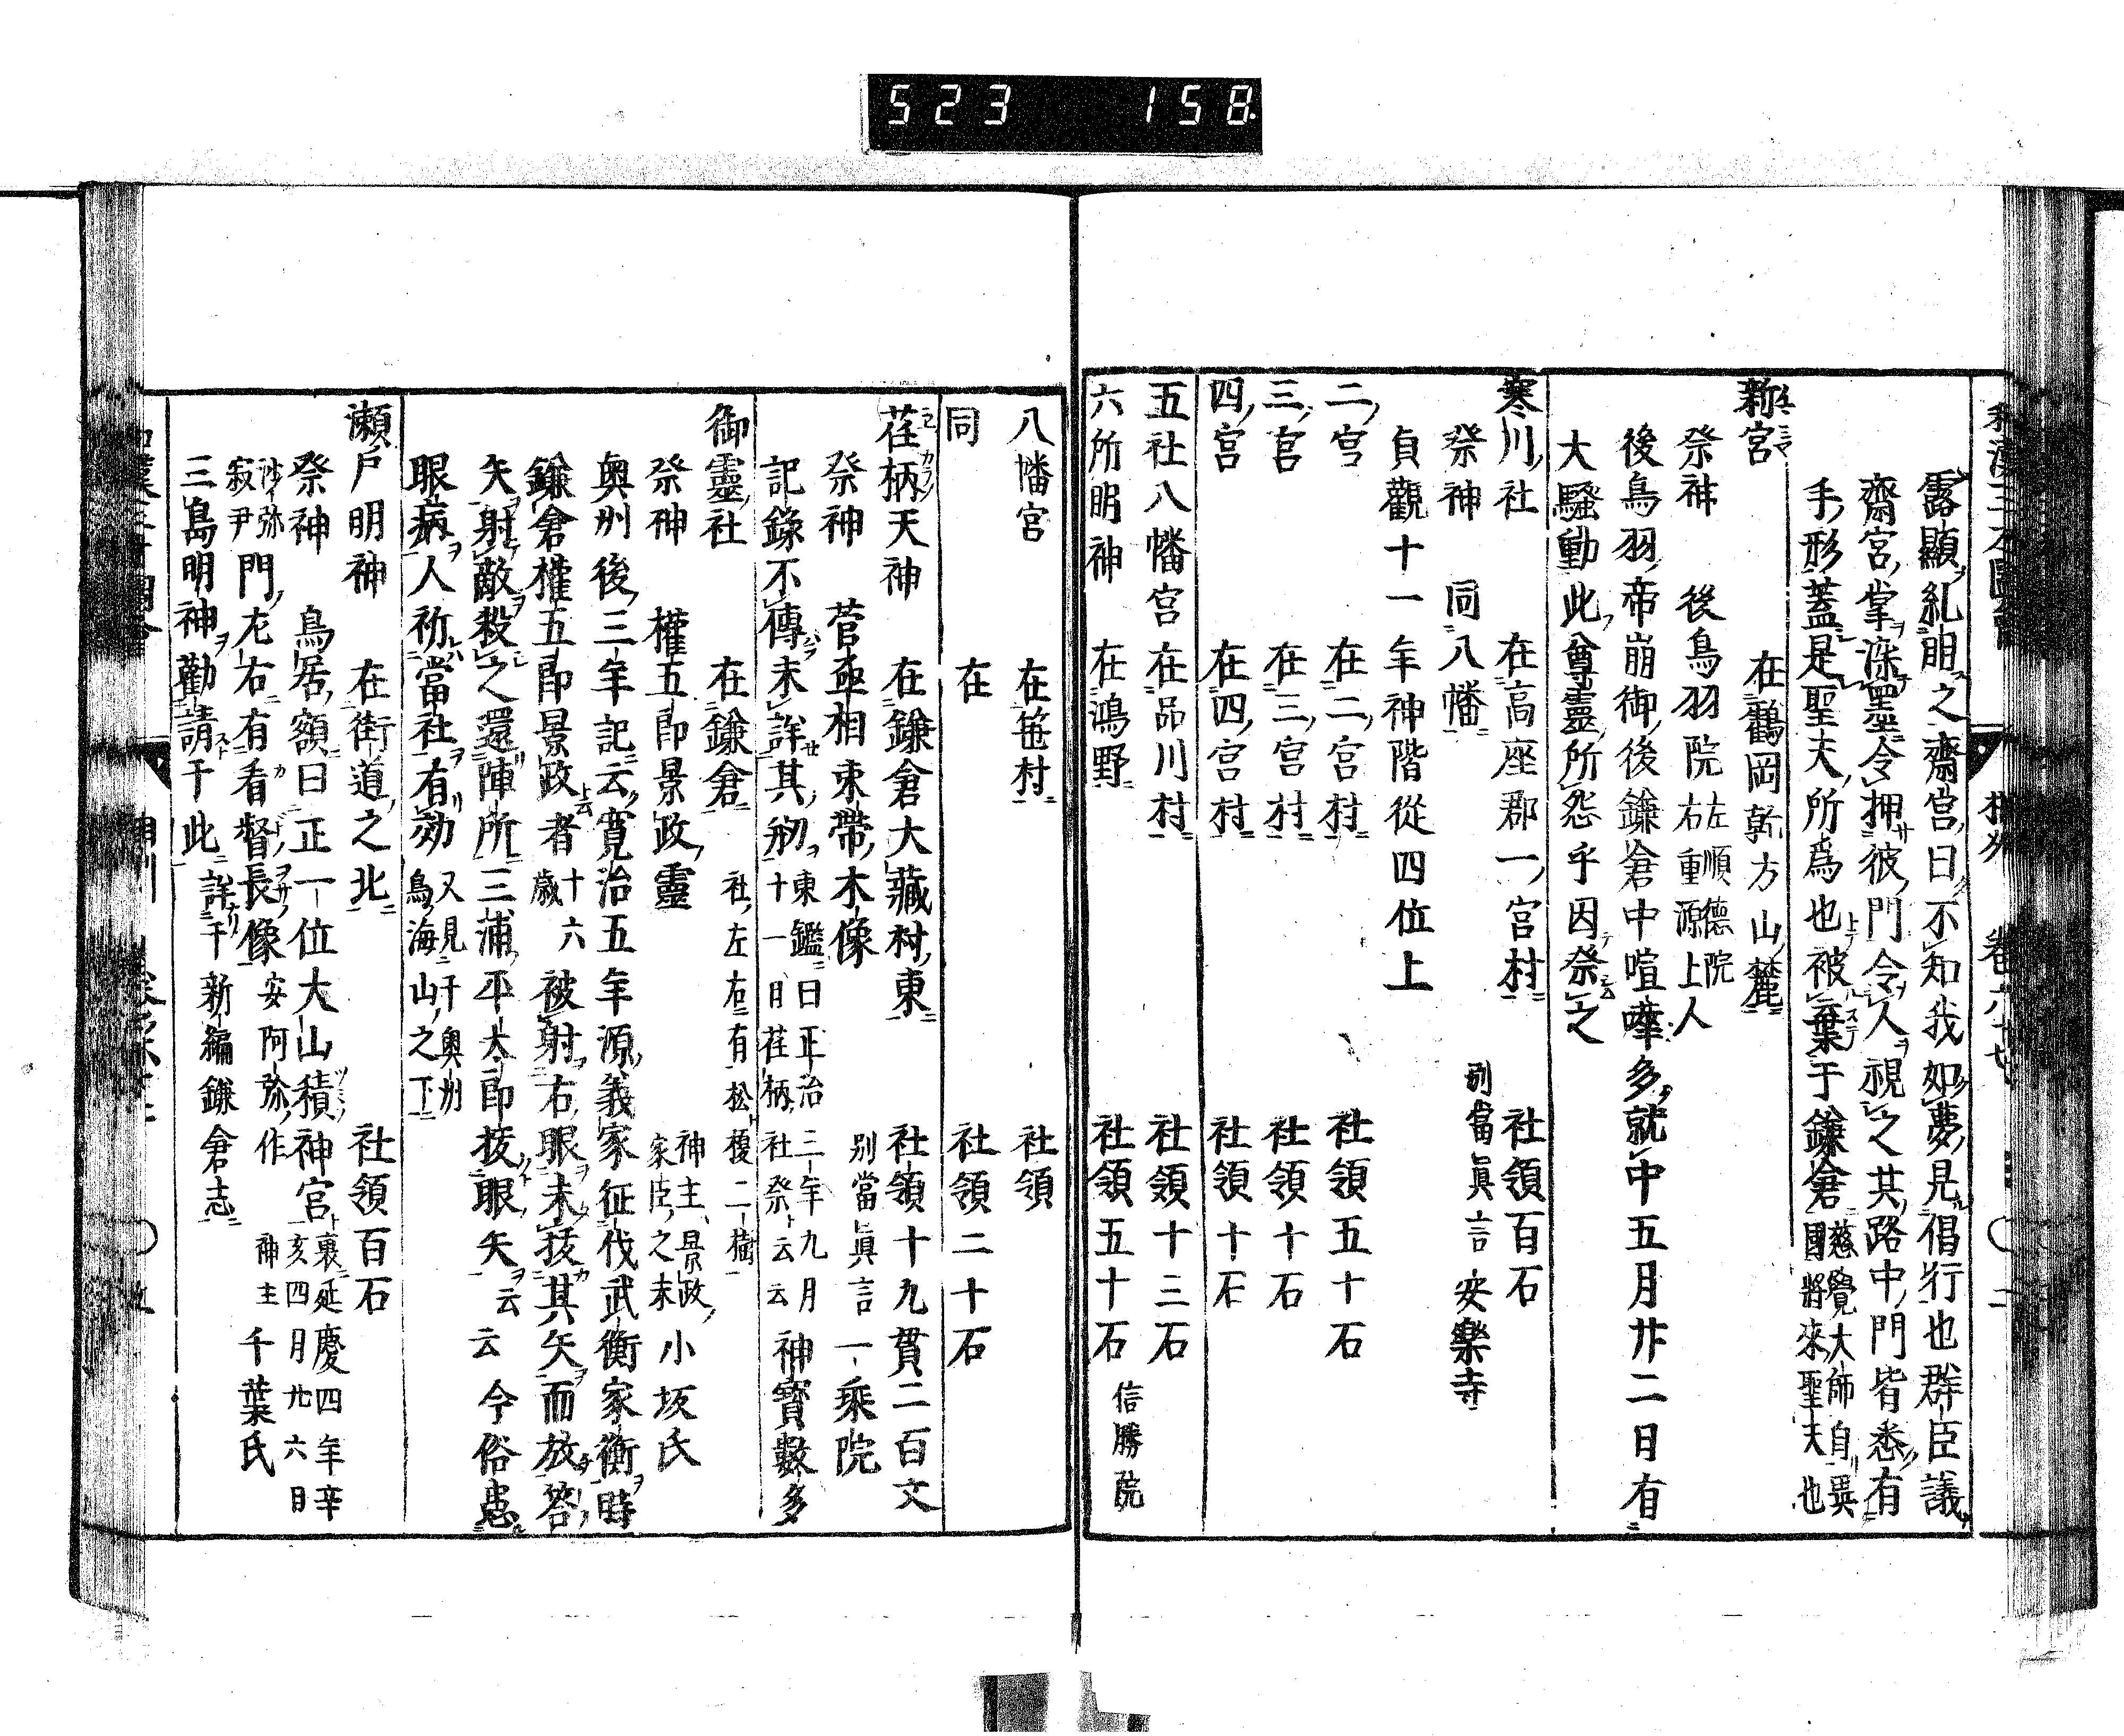 523 158
和漢三才圖會 相州 卷六十七
露顯糺明之齋宮曰不知我如夢見倡行也群臣議
齋宮掌深墨令押彼門令人視之其路中門皆悉有
手形蓋是聖夫所爲也被棄于鎌倉
慈覺大師自異
國將來聖夫也
新宮 在鶴岡乾方山麓
祭神 後鳥羽院 左順德院
右重源上人
後鳥羽帝崩御後鎌倉中喧嘩多就中五月廿二日有
大騷動此尊靈所怨乎因祭之
寒川社 在高座郡一宮村 社領百石
祭神 同八幡 別當眞言 安樂寺
貞觀十一年神階從四位上
二宮 在二宮村 社領五十石
三宮 在三宮村 社領十石
四宮 在四宮村 社領十石
五社八幡宮 在品川村 社領十三石
六所明神 在鴻野 社領五十石 信勝院
八幡宮 在笹村 社領
同 在 社領二十石
荏柄天神 在鎌倉大藏村東 社領十九貫二百文
祭神 菅亟相束帶木像 別當眞言 一乘院
記錄不傳未詳其初
東鑑曰正治三年九月
十一日荏柄社祭云云
神寳數多
御靈社 在鎌倉 社左右有松榎二樹
祭神 權五郎景政靈
神主景政
家臣之末
小坂氏
奧州後三年記云寛治五年源義家征伐武衡家衡時
鎌倉權五郎景政者
十六
歳
被射右眼未拔其矢而放答
矢射敵殺之還陣所三浦平太郎拔眼矢云云今俗患
眼病人祈當社有効
又見于奧州
鳥海山之下
瀬戸明神 在街道之北 社領百石
祭神 鳥居額曰正一位大山積神宮
裏延慶四年辛
亥四月廿六日
沙弥
寂尹
門左右有看督長像 安阿弥作 神主 千葉氏
三島明神勸請于此 詳于新編鎌倉志